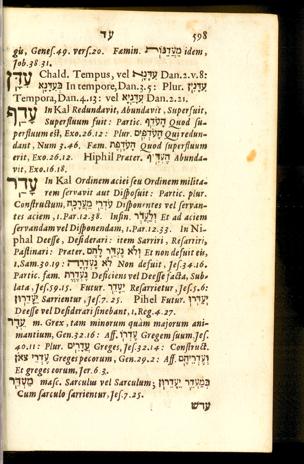 עד 598
gù, Genes. 49. vers. 20. Fæmin. מַעֲדַנּוֹת idem,
Job. 38. 31.
עִדָּן Chald. Tempus, vel עִדָּנָא Dan. 2. v. 8:
בְּעִדָּנָא In tempore, Dan. 3. 5: Plur. עִדָּנִין
Tempora, Dan. 4. 13: vel עִדָּנַיָּא Dan. 2. 21.
עָדַף In Kal Redundavit, Abundavit, Superfuit,
Superfluum fuit: Partic. הָעֹדֵף Quod su-
perfluum est, Exo. 26. 12: Plur. הָעֹדְפִים Qui redun-
dant, Num 3. 46. Fœm. הָעֹדֶפֶת Quod superfluum
erit, Exo. 26. 12. Hiphil Præter. הֶעְדִּיף Abunda-
vit, Exo. 16. 18.
עָדַר In Kal Ordinem aciei seu Ordinem milita-
rem servavit aut Disposuit: Partic. plur.
Constructum, עֹדְרֵי מַעֲרָכָה Disponentes vel servan-
tes aciem, 1. Par. 12. 38. Infin. וְלַעֲדֹר Et ad aciem
servandam vel Disponendam, 1. Par. 12. 33. In Ni-
phal Deesse, Desiderari: item Sarriri, Resarriri,
Pastinari: Præter. וְלֹא נֶעְדַּר לָהֶם Et non defuit eis,
1. Sam. 30. 19: לֹא נֶעְדָּרָה Non defuit, Jes. 34. 16.
Partic. fœm. נֶעְדֶּרֶת Deficiens vel Deesse facta, Sub-
lata, Jes. 59. 15. Futur. יֵעָדֵר Resarrietur, Jes. 5. 6:
יֵעָדֵרוּן Sarrientur, Jes. 7. 25. Pihel Futur. יְעַדְּרוּ
Deesse vel Desiderari sinebant, 1. Reg. 4. 27.
עֵדֶר m. Grex, tam minorum quàm majorum ani-
mantium, Gen. 32. 16: Aff. עֶדְרוֹ Gregem suum, Jes.
40. 11: Plur. עֲדָרִים Greges, Jes. 32. 14: Construct.
עֶדְרֵי צֹאן Greges pecorum, Gen. 29. 2: Aff. וְעֶדְרֵיהֶם
Et greges eorum, Jer. 6. 3.
מַעְדֵּר masc. Sarculus vel Sarculum; בַּמַּעְדֵּר יֵעָדֵרוּן
Cum sarculo sarrientur, Jes. 7. 25.
ערש